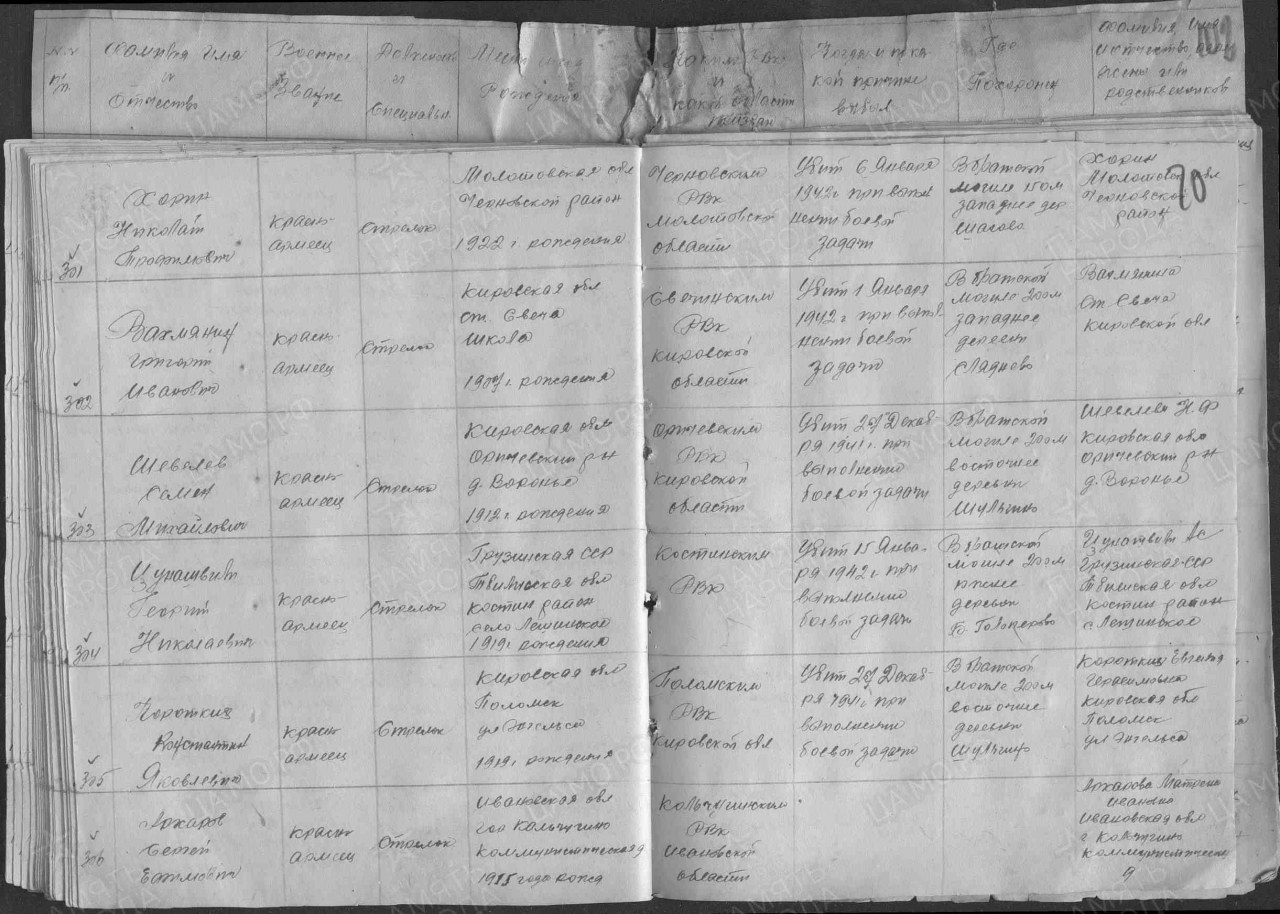 №№
п/п.
Фамилия имя
и
Отчество
Военное
звание
и
Специальн
Рождения
и
Когда и по ка
кой причине
выбыл
Где
Похоронен
Фамилия, имя
и отчество
жены или
родственников
103
70
301
Харин
Николай
Трофимович
красно
армеец
Стрелок
Молотовская обл
Черновской район
1922 г. рождения
Черновским
РВК
Молотовской
области
Убит 6 Января
1942г. при выпол
нении боевой
задачи
В братской
могиле 150м
западнее дер
Харин
Молотовская обл
Черновской
район
302
Вахмянин
Григорий
Иванович
красно
армеец
Стрелок
Кировская обл
ст. Свеча
Школа
1907 г. рождения
Свечинским
РВК
Кировской
области
Убит 1 Января
1942 г при выпол
нении боевой
задачи
В братской
могиле 200м
западнее
деревни
Сладнево
Вахмянина
ст. Свеча
Кировской обл
303
Шевелев
Семен
Михайлович
красно
армеец
Стрелок
Кировская обл
Оричевский р-н
д. Воронье
1912 г. рождения
Оричевским
РВК
Кировской
области
Убит 28 Декаб-
ря 1941г. при
выполнении
боевой задачи
В братской
могиле 200м
восточнее
деревни
Шульгино
Шевелева Н.Ф
Кировская обл
Оричевский р-н
д. Воронье
304
Георгий
Николаевич
красно
армеец
Стрелок
Грузинская ССР
Тбилисская обл
Костин район
село
1919г рождения
Костинским
РВК
Убит 15 Янва-
ря 1942 г при
выполнении
боевой задачи
В братской
могиле 200м
деревни
Грузинская ССР
Тбилисская обл
Костин район
305
Коротких
Константин
Яковлевич
красно
армеец
Стрелок
Кировская обл
Поломск
ул Энгельса
1919г. рождения
Поломским
РВК
Кировской обл
Убит 28 Декаб-
ря 1941г при
выполнении
боевой задачи
В братской
могиле 200м
восточнее
деревни
Шульгино
Коротких Евгения
Герасимовна
Кировская обл
Поломск
ул Энгельса
306
Сергей
Ефимович
красно
армеец
Стрелок
Ивановская обл
гор Кольчугино
Коммунистическая 9
1915 года рожд
Кольчугинским
РВК
Ивановской
области
Матрена
Ивановна
Ивановская обл
г. Кольчугино
Коммунистическая
9